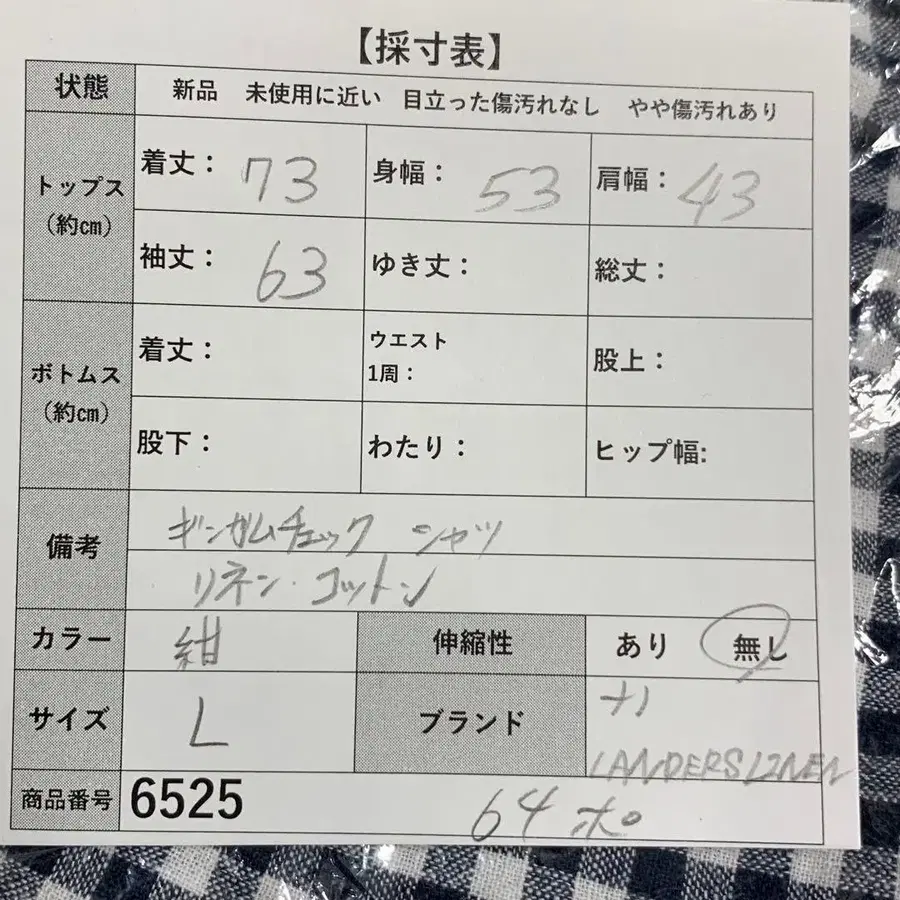 【採寸表】
状態 新品 未使用に近い 目立った傷汚れなし やや傷汚れあり
トップス（約cm） 着丈： 73 身幅： 53 肩幅： 43
袖丈： 63 ゆき丈： 総丈：
ボトムス（約cm） 着丈： ウエスト1周： 股上：
股下： わたり： ヒップ幅:
備考 ギンガムチェック シャツ
リネン・コットン
カラー 紺 伸縮性 あり 無し
サイズ L ブランド
LANDERS LINEN
商品番号 6525 64 ポ